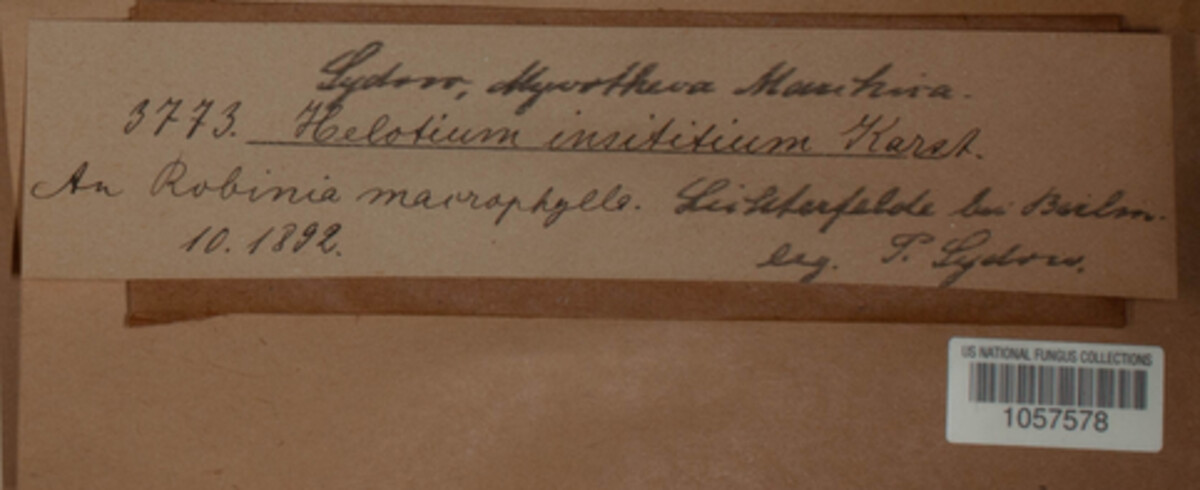 Sydow, Mycotheca Marchica.
3773. Helotium insititium Karst.
An Robinia macrophylla. Lichterfelde bei Berlin.
10. 1892.
leg. P. Sydow.
US NATIONAL FUNGUS COLLECTIONS
1057578